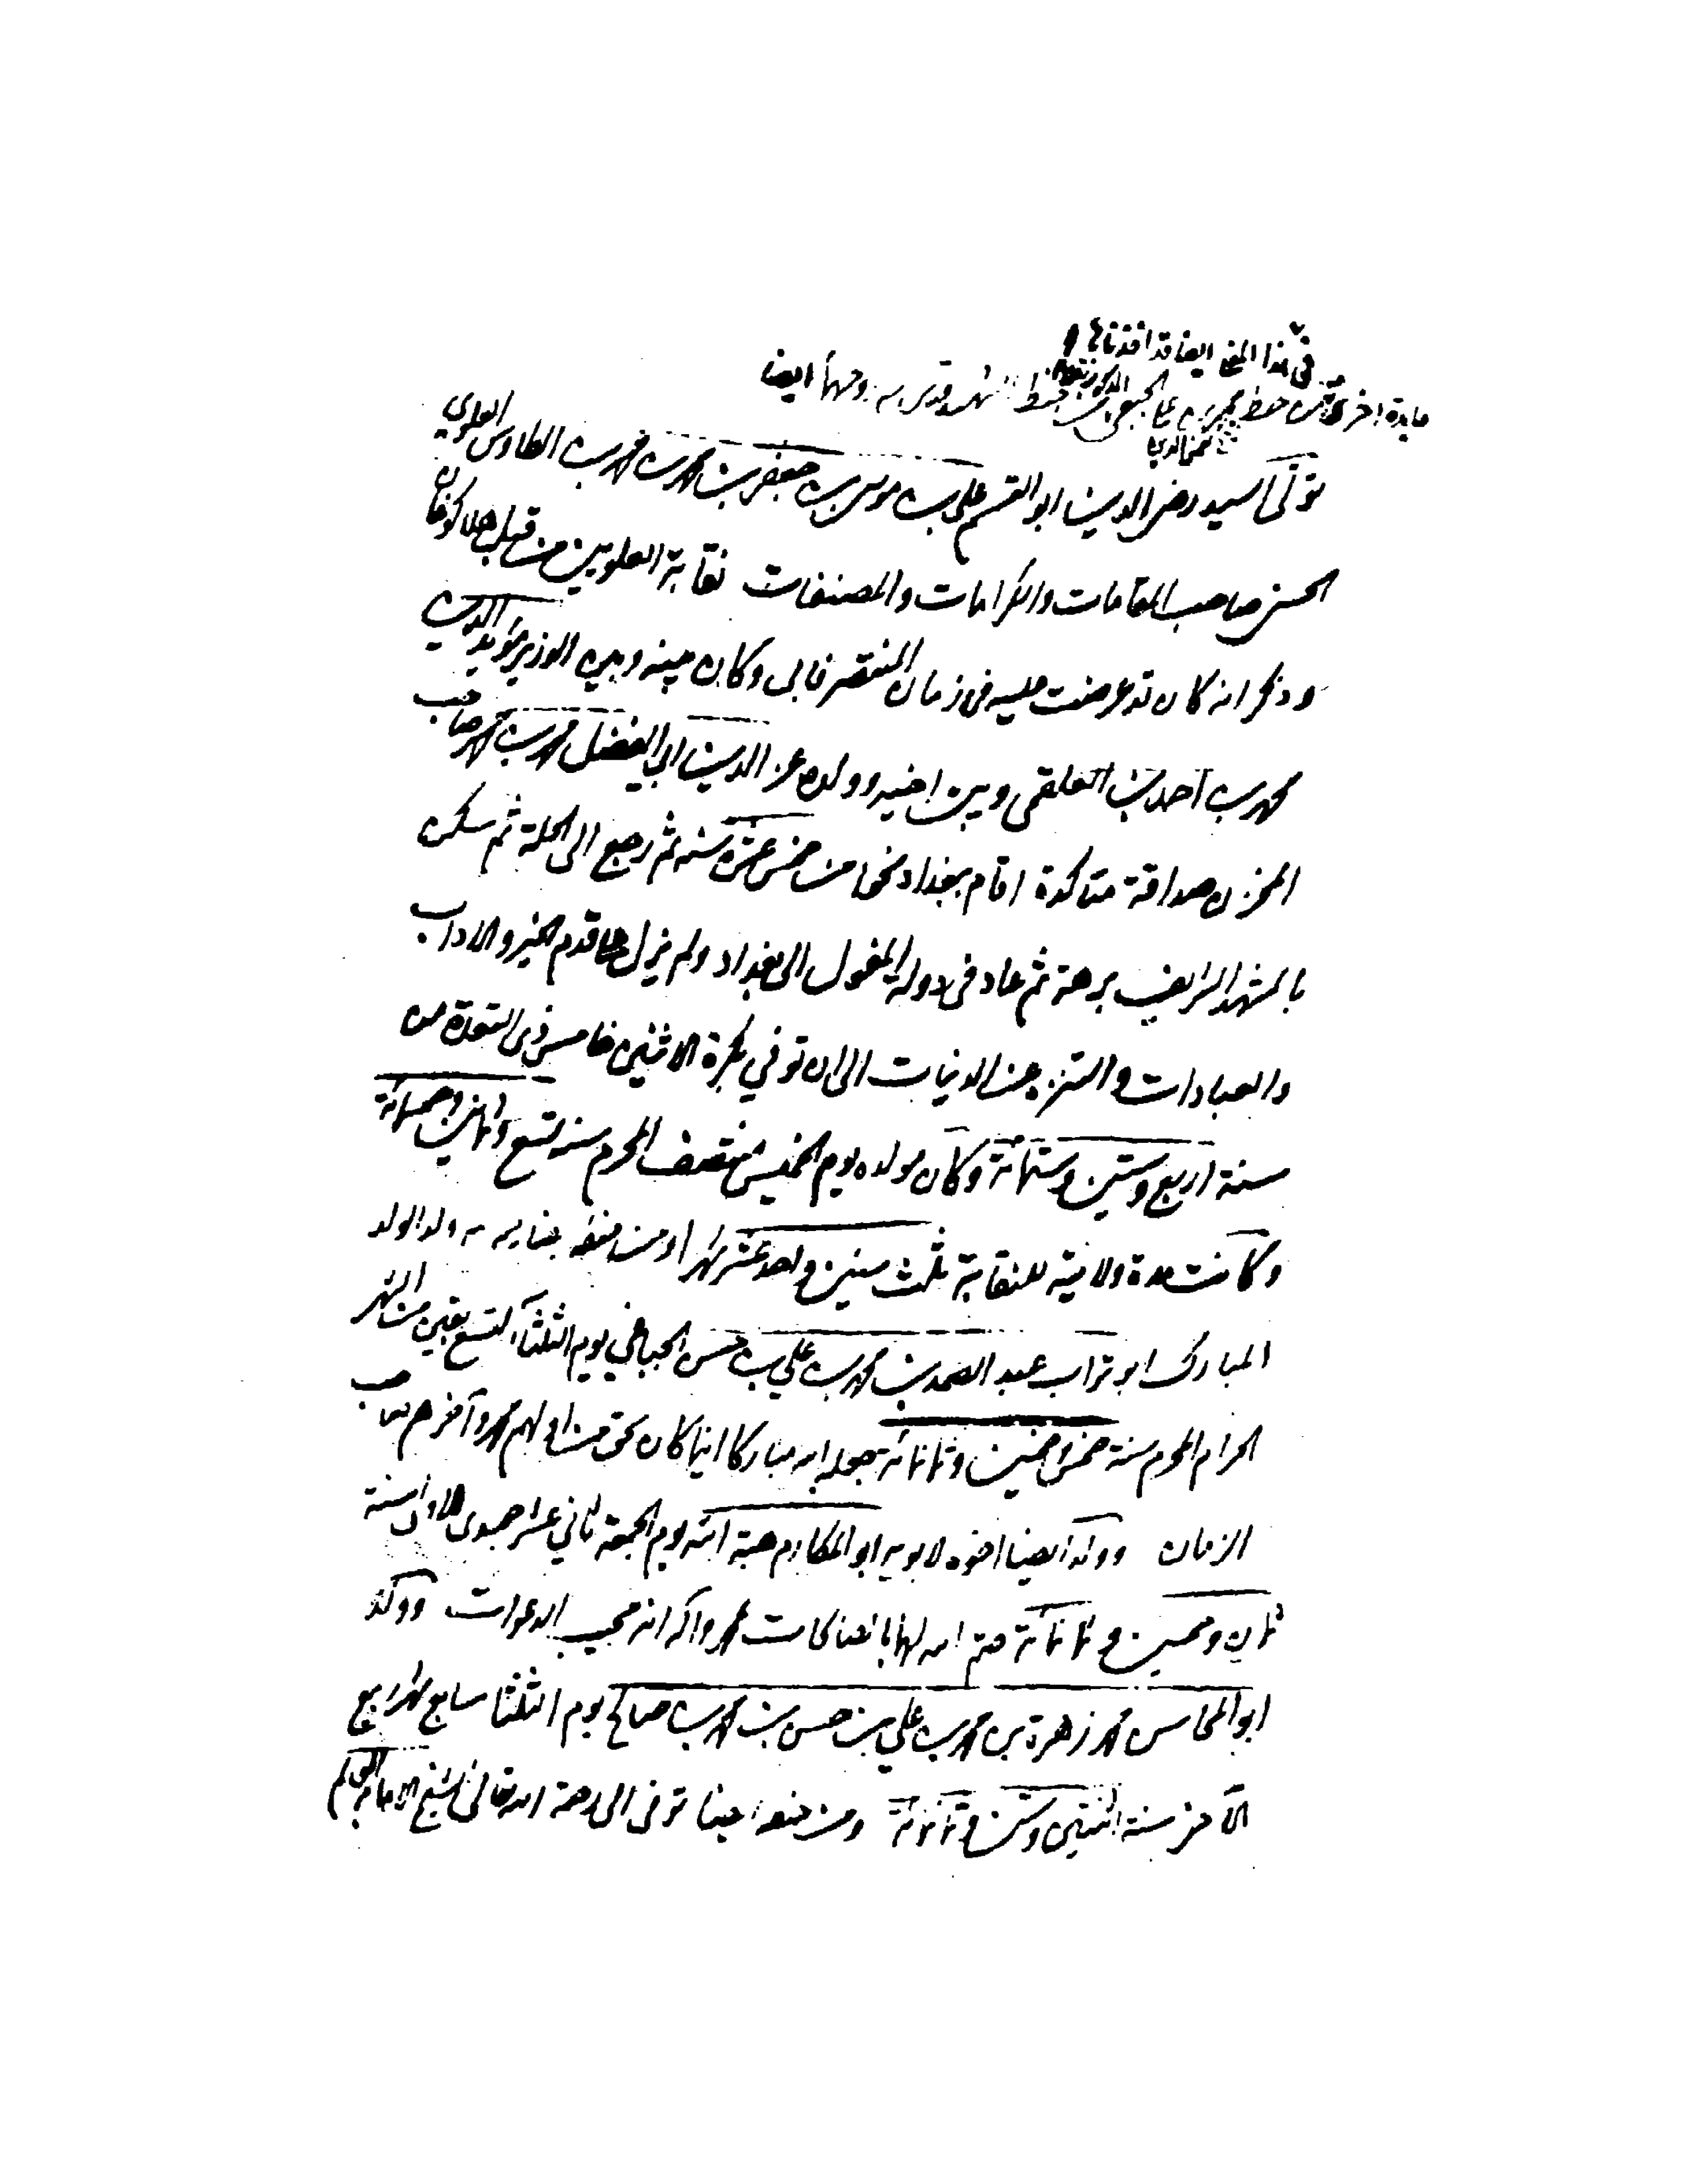 في هذا المعنى ايضا قد اخذناها
فايدة اخرى من خط محمد بن علي الجبعي من خط الشهيد قدس الله روحهما ايضا
تولى السيد رضي الدين ابو القسم علي بن موسى بن جعفر بن محمد بن محمد بن الطاوس العلوي
الحسني صاحب المقامات والكرامات والمصنفات نقابة العلويين من قبل هلاكوخان
وذكر انه كان قد عرضت عليه في زمان المستنصر فابى وكان بينه وبين الوزير مؤيد الدين
محمد بن احمد بن العلقمي وبين اخيه وولده عز الدين ابي الفضل محمد بن محمد صاحب
المخزن صداقة متاكدة اقام ببغداد نحوا من خمس عشرة سنة ثم رجع الى الحلة ثم سكن
بالمشهد الشريف برهة ثم عاد في دولة المغول الى بغداد ولم يزل على قدم الخير والاداب
والعبادات والتنزه عن الدنيات الى ان توفي بكرة الاثنين خامس ذي القعدة من
سنة اربع وستين وستمائة وكان مولده يوم الخميس منتصف المحرم سنة تسع وثمانين وخمسمائة
وكانت مدة ولايته للنقابة ثلث سنين واحد عشر شهرا ومن خطه ولد الولد
المبارك ابو تراب عبد الصمد بن محمد بن علي بن حسن الجباعي يوم الثلثا لتسع بقين من الشهر
الحرام المحرم سنة خمس وخمسين وثمانمائة جعله الله مباركا اينما كان بحق من اولهم محمد واخرهم صاحب
الزمان وولد ايضا اخوه لابويه ابو المكارم هبة الله يوم الجمعة ثاني عشر جمدى الاولى سنة
ثمان وخمسين وثمانمائة ختم الله لهما بالصالحات بمحمد واله انه مجيب الدعوات وولد
ابو المحاسن محمد زهرة بن محمد بن علي بن حسن بن محمد بن صالح يوم الثلثا سابع شهر ربيع
الآخر سنة اثنتين وستين وثمانمائة ومن خطه ايضا توفي الى رحمة الله تعالى الشيخ الامام العالم